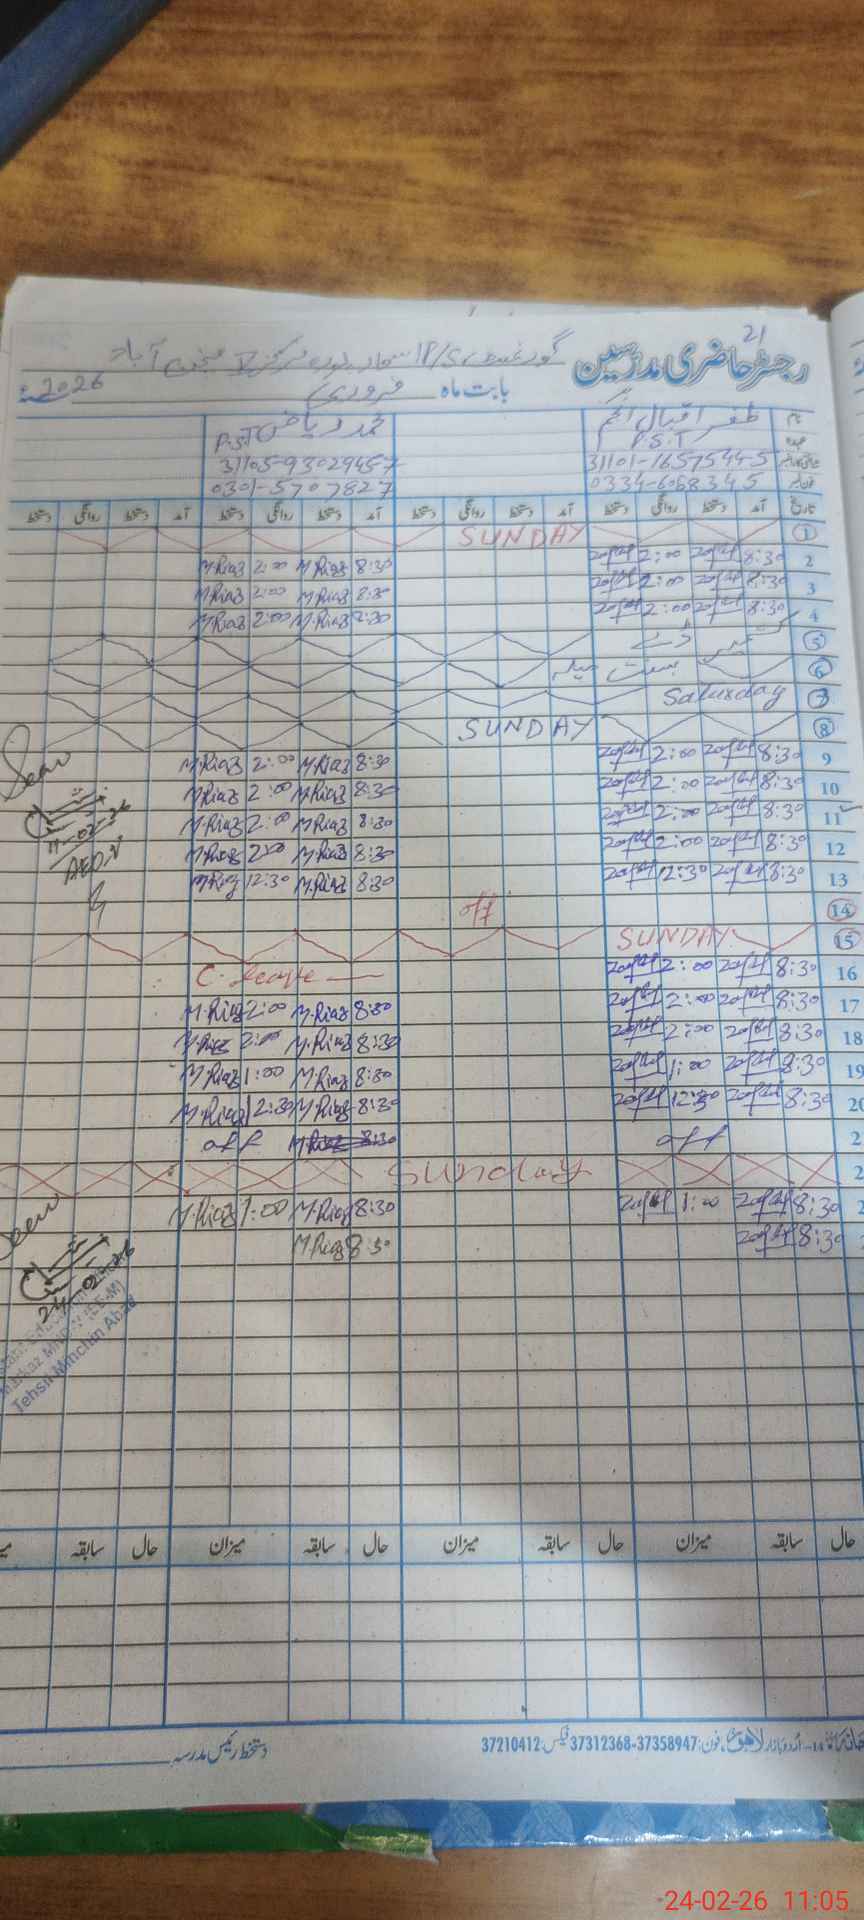 21
رجسٹر حاضری مدرسین گورنمنٹ P/S
بابت ماہ فروری 2026
نام ظفر اقبال انجم محمد ریاض
عہدہ P.S.T P.S.T
31101-1657544-5 31105-9302945-7
0334-6068345 0301-5707827
تاریخ آمد دستخط روانگی دستخط آمد دستخط روانگی دستخط آمد دستخط روانگی دستخط آمد دستخط روانگی دستخط
1 SUNDAY
2 8:30 2:00 8:30 M.Riaz 2:00 M.Riaz
3 8:30 2:00 8:30 M.Riaz 2:00 M.Riaz
4 8:30 2:00 8:30 M.Riaz 2:00 M.Riaz
5 کشمیر ڈے
6 بسنت میلہ
7 Saturday
8 SUNDAY
9 8:30 2:00 8:30 M.Riaz 2:00 M.Riaz
10 8:30 2:00 8:30 M.Riaz 2:00 M.Riaz
11 8:30 2:00 8:30 M.Riaz 2:00 M.Riaz
12 8:30 2:00 8:30 M.Riaz 2:00 M.Riaz
13 8:30 12:30 8:30 M.Riaz 12:30 M.Riaz
Seen
11-02-26
14 off
15 SUNDAY
16 8:30 2:00 C.leave
17 8:30 2:00 8:30 M.Riaz 2:00 M.Riaz
18 8:30 2:00 8:30 M.Riaz 2:00 M.Riaz
19 8:30 1:00 8:30 M.Riaz 1:00 M.Riaz
20 8:30 12:30 8:30 M.Riaz 12:30 M.Riaz
2 off off
2 Sunday
2 8:30 1:00 8:30 M.Riaz 1:00 M.Riaz
8:30 8:30 M.Riaz
Seen
24-02-26
Tehsil Minchin Abad
حال سابقہ میزان حال سابقہ میزان حال سابقہ
اردو بازار لاہور، فون: 37358947-37312368 فیکس: 37210412
دستخط رئیس مدرسہ
24-02-26 11:05